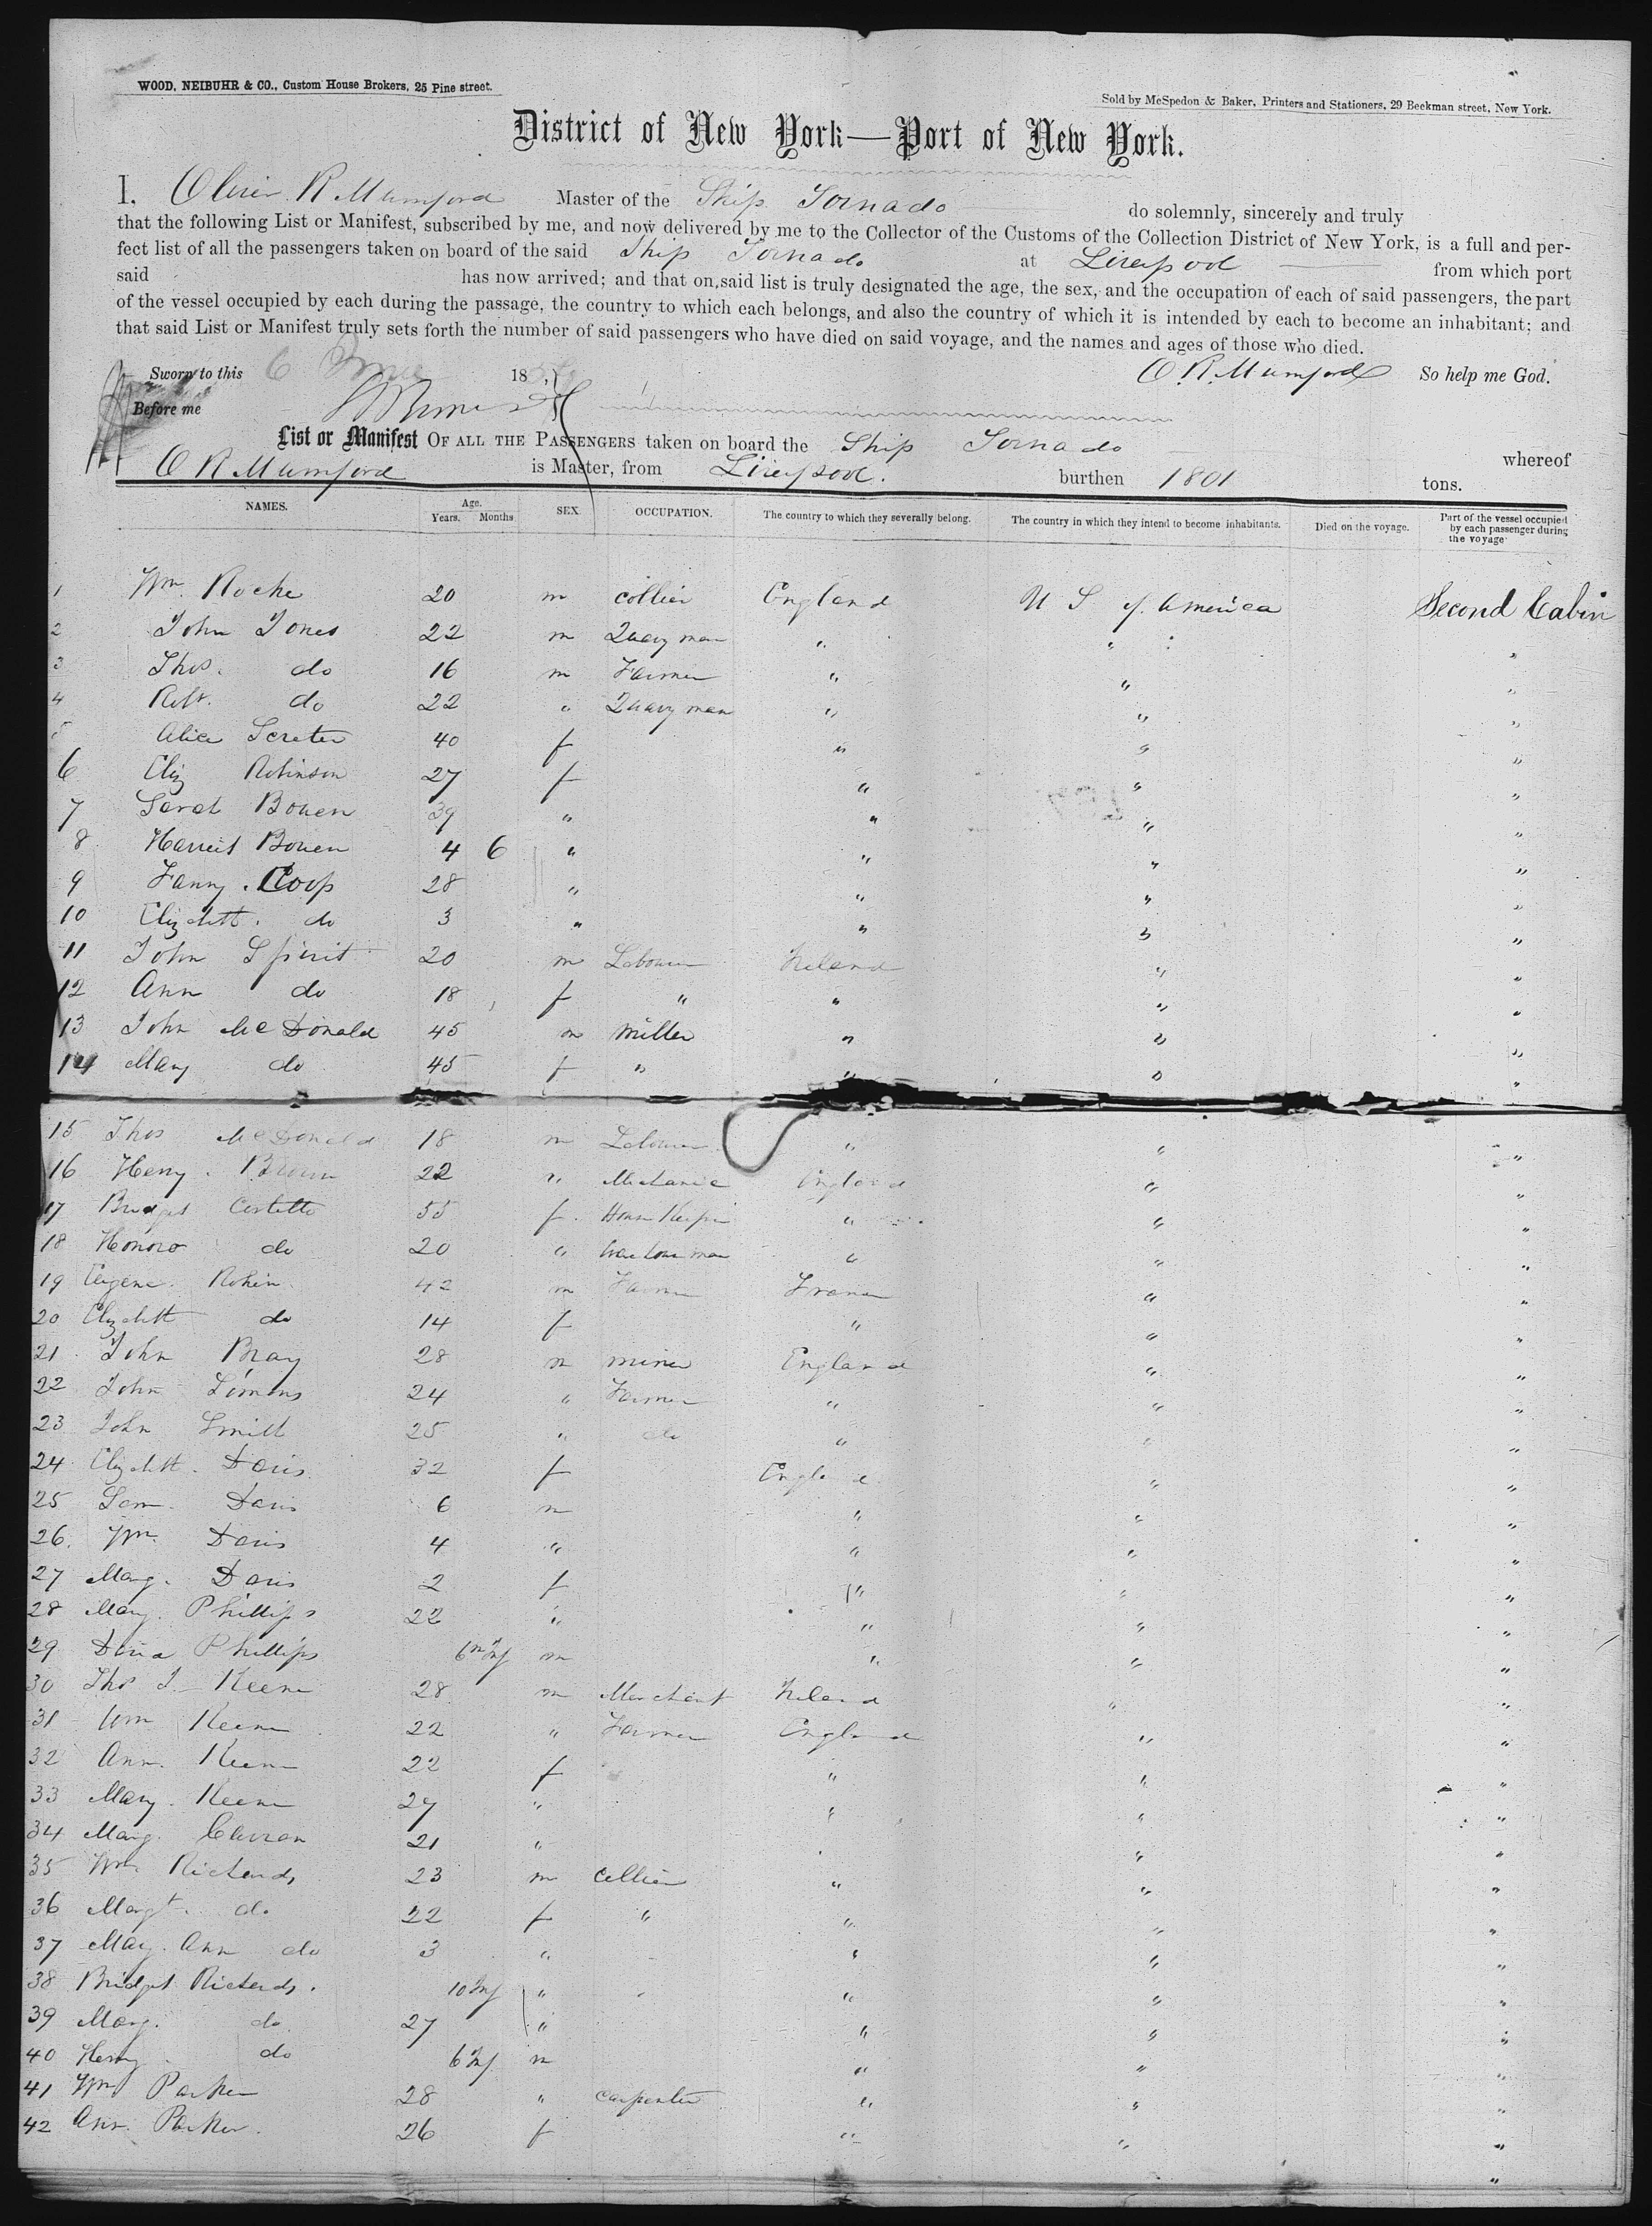 WOOD, NEIBUHR & CO., Custom House Brokers, 25 Pine street.
Sold by McSpedon & Baker, Printers and Stationers, 29 Beekman street, New York.
District of New York—Port of New York.
I, Oliver R Mumford Master of the Ship Tornado do solemnly, sincerely and truly
that the following List or Manifest, subscribed by me, and now delivered by me to the Collector of the Customs of the Collection District of New York, is a full and per-
fect list of all the passengers taken on board of the said Ship Tornado at Liverpool from which port
said has now arrived; and that on said list is truly designated the age, the sex, and the occupation of each of said passengers, the part
of the vessel occupied by each during the passage, the country to which each belongs, and also the country of which it is intended by each to become an inhabitant; and
that said List or Manifest truly sets forth the number of said passengers who have died on said voyage, and the names and ages of those who died.
Sworn to this 6 June 18 O. R. Mumford So help me God.
Before me
List or Manifest OF ALL THE PASSENGERS taken on board the Ship Tornado whereof
O R Mumford is Master, from Liverpool. burthen 1801 tons.
NAMES. Age. Years. Months SEX OCCUPATION. The country to which they severally belong. The country in which they intend to become inhabitants. Died on the voyage. Part of the vessel occupied by each passenger during the voyage
1 Wm. Roche 20 m collier England U S of America Second Cabin
2 John Jones 22 m Quary man " " "
3 Thos. do 16 m Farmer " " "
4 Robt. do 22 " Quary man " " "
5 Alice 40 f " " "
6 Eliz Robinson 27 f " " "
7 Sarah Bowen 39 " " " "
8 Harriet Bowen 4 6 " " " "
9 Fanny. Coop 28 " " " "
10 Elizabeth. do 3 " " " "
11 John Spirit 20 m Labourer Ireland " "
12 Ann do 18 f " " " "
13 John McDonald 45 m miller " " "
14 Mary do 45 f " " " "
15 Thos McDonald 18 m Labourer " " "
16 Henry. Brown 22 " Mechanic England " "
17 Bridget Costello 55 f. House Keeper " " "
18 Honora do 20 " " " "
19 Eugene. Robin 42 m Farmer France " "
20 Elizabeth do 14 f " " "
21 John Bray 28 m miner England " "
22 John Simons 24 " Farmer " " "
23 John Smith 25 " do " " "
24 Elizabeth. Davis 32 f England " "
25 Sam. Davis 6 m " " "
26. Wm. Davis 4 " " " "
27 Marg. Davis 2 f " " "
28 Mary. Phillips 22 " " " "
29 Phillips 6 m " " "
30 Thos J. Keene 28 m Merchant Ireland " "
31 Wm Keene 22 " Farmer England " "
32 Ann. Keene 22 f " " "
33 Mary. Keene 27 " " " "
34 Marg. 21 " " "
35 Wm. Richards 23 m Collier " " "
36 Margt. do 22 f " " " "
37 Mary. Ann do 3 " " " "
38 Bridget Richards. 10 " " " "
39 Mary. do 27 " " " "
40 Henry. do 6 m " " "
41 Wm Parker 28 " carpenter " " "
42 Ann. Parker. 26 f " " "